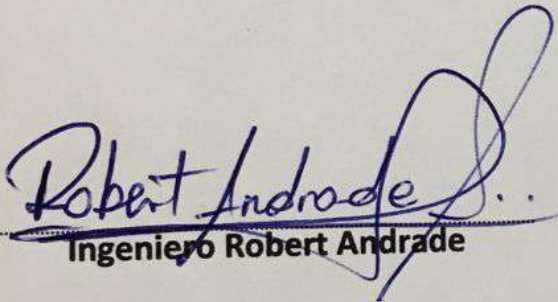 Robert Andrade S..
Ingeniero Robert Andrade